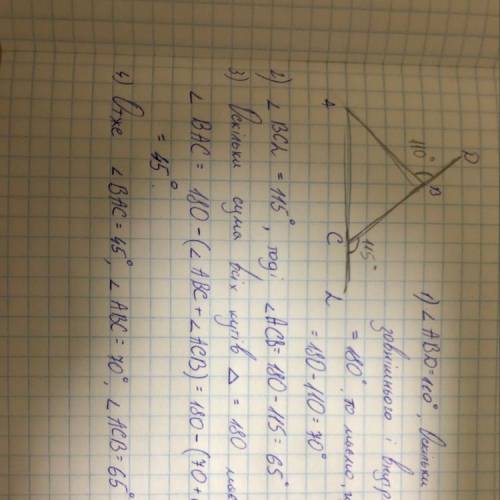 D
110°
B
A
C
115°
L
1) ∠ABD=110°, Оскільки
зовнішнього і внутр
= 180°, то маємо,
= 180-110=70°
2) ∠BCL = 115°, тоді ∠ACB=180-115=65°
3) Оскільки сума всіх кутів △ = 180
∠BAC = 180-(∠ABC+∠ACB)=180-(70+
= 45°.
4) Отже ∠BAC=45°, ∠ABC=70°, ∠ACB=65°